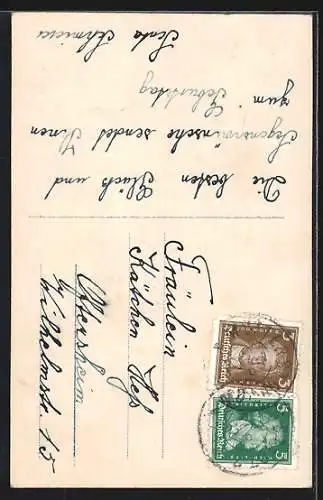 Die besten Glück und
Segenswünsche sendet Ihnen
zum Geburtstag
Senta Schmieia
Fräulein
Kätchen Heß
Ottersheim
Wilhelmstr. 15
3 3
Deutsches Reich
5 5
Deutsches Reich